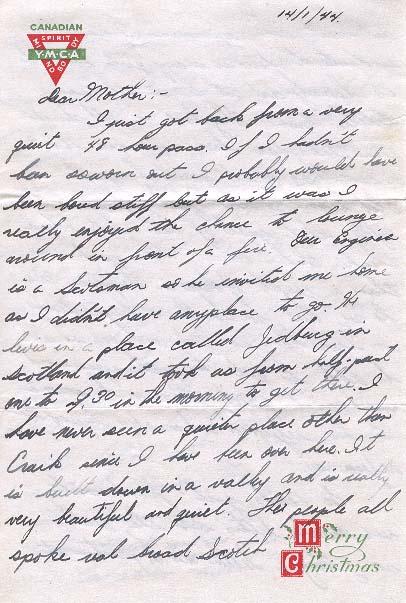 CANADIAN
SPIRIT
MIND
BODY
Y·M·C·A
14/1/44.
Dear Mother:-
I just got back from a very
quiet 48 hour pass. If I hadn't
been so worn out I probably would have
been bored stiff but as it was I
really enjoyed the chance to lounge
around in front of a fire. Our Engineer
is a Scotsman so he invited me home
as I didn't have anyplace to go. He
lives in a place called Jedburg in
Scotland and it took us from half past
one to 9.30 in the morning to get there. I
have never seen a quieter place other than
Craik since I have been over here. It
is built down in a valley and is really
very beautiful and quiet. The people all
spoke real broad Scotch
Merry
Christmas